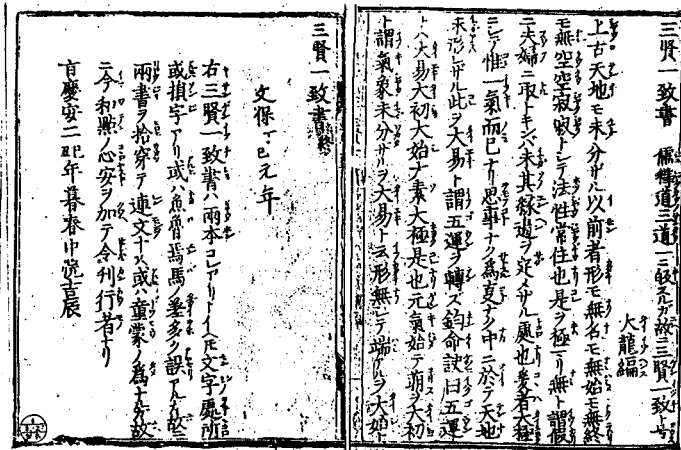 三賢一致書 儒釋道三道一ニ皈スルカ故三賢一致ト号
大龍編
上古天地モ未分サル以前者形モ無名モ無始モ無終
モ無空空寂寂トシテ法性常住也是ヲ極リ無ト謂假
ニ夫婦ニ取トキンハ未其縁過ヲ定メサル處也爰者太極
ニシテ惟一氣而已ナリ思事ナク為夏ナク中ニ於テ天地
未形レサル此ヲ大易ト謂五運ヲ轉ズ鈎命訣曰五運
トハ大易大初大始大素大極是也元氣始テ萌ヲ大初
ト謂氣象未分サルヲ大易ト云形無シテ端アルヲ大始ト
三賢一致書終
文保丁巳元年
右三賢一致書ハ兩本コレアリトイヘ𪜈文字處所
或損字アリ或ハ魚魯焉馬ノ差多ク誤アルカ故ニ
兩書ヲ拾穿テ連文ナス或ハ童蒙ノ為ナルカ故
ニ今和點ノ心安ヲ加テ令刊行者ナリ
旹慶安二年暮春中浣吉辰